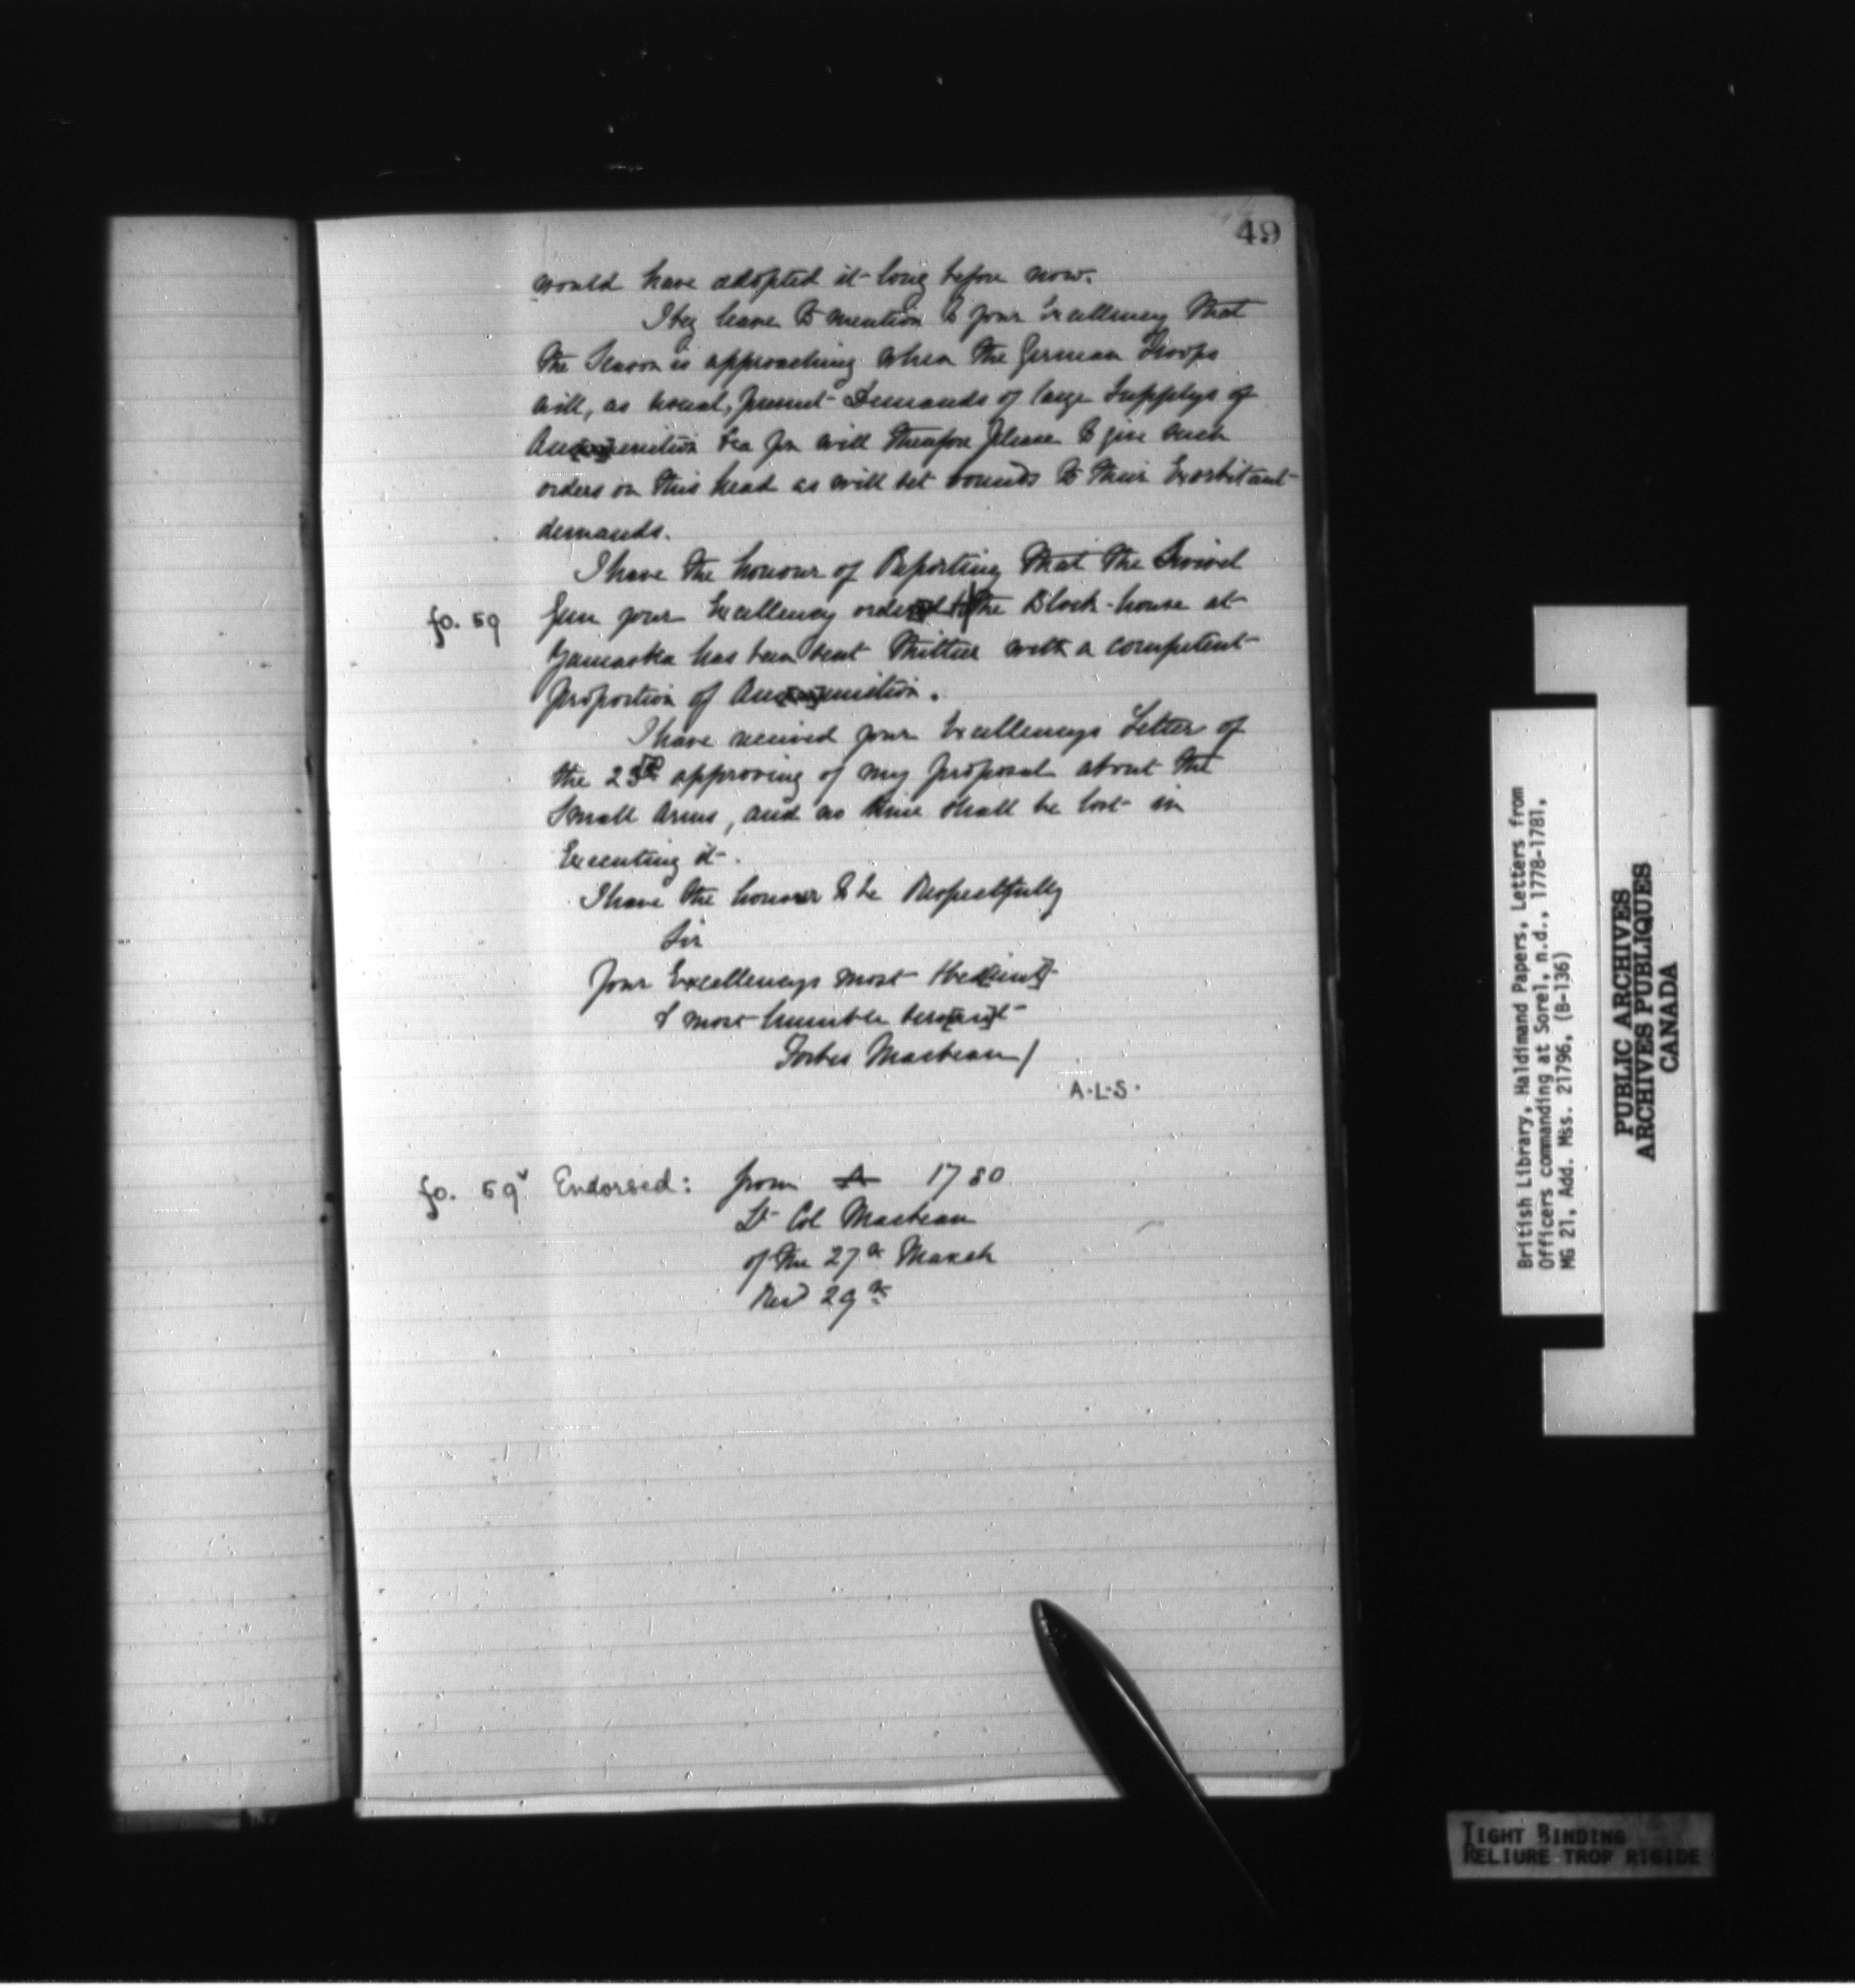 49
would have adopted it long before now.
I beg leave to mention to your Excellency that
the Season is approaching when the German Troops
will, as usual, present Demands of large Supplys of
Ammunition you will therefore please to give such
orders on this head as will set bounds to their Exorbitant
demands.
I have the honour of Reporting that the Swivel
fo. 59 Gun your Excellency ordered to the Block-house at
Yamaska has been sent thither with a competent
proportion of Ammunition.
I have received your Excellencys Letter of
the 23rd approving of my proposal about the
Small Arms, and no time shall be lost in
Executing it.
I have the honour to be Respectfully
Sir
Your Excellencys most Obedient
& most humble Servant
Forbes Macbean
A.L.S.
fo. 59v Endorsed: from 1780
Lt Col Macbean
of the 27th March
Recd 29th
British Library, Haldimand Papers, Letters from
Officers commanding at Sorel, n.d., 1778-1781,
MG 21, Add. Mss. 21796, (B-136)
PUBLIC ARCHIVES
ARCHIVES PUBLIQUES
CANADA
TIGHT BINDING
RELIURE TROP RIGIDE